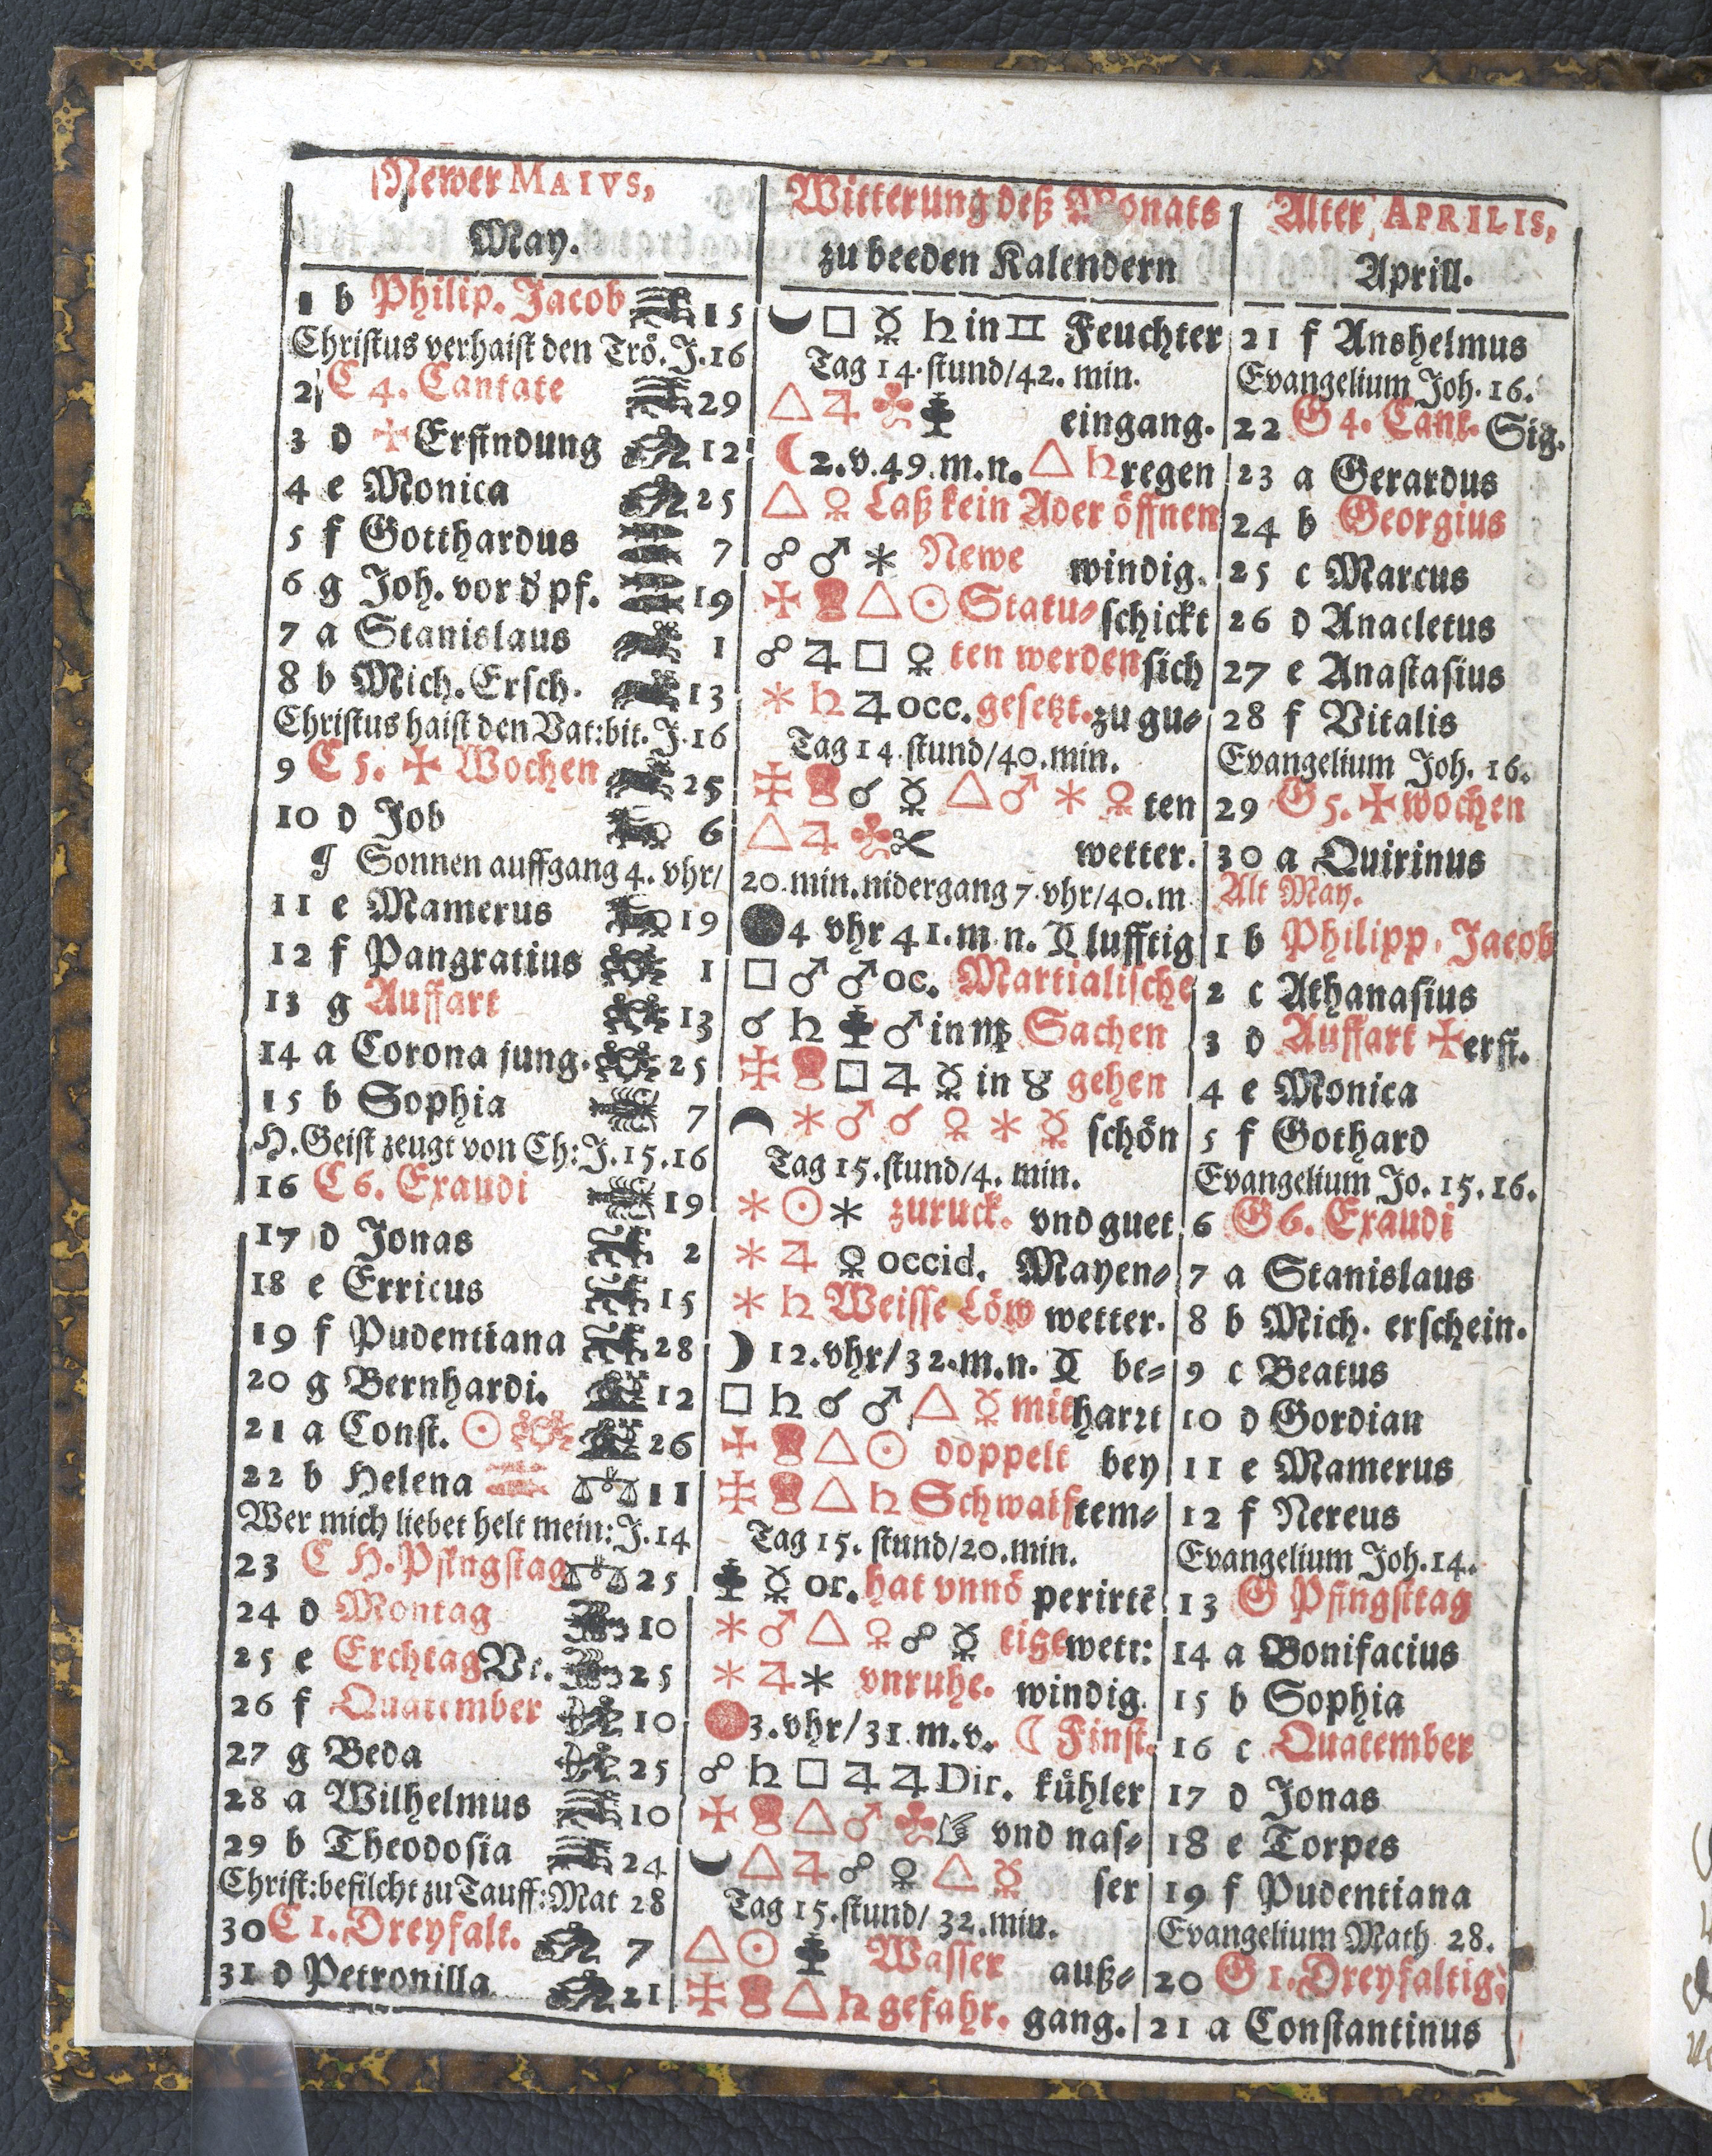 Newer MAIVS,
May.
Witterung deß Monats
zu beeden Kalendern
Alter APRILIS,
Aprill.
1 b Philip. Jacob 15 ☐ ☿ ♄ in ♊ Feuchter 21 f Anshelmus
Christus verhaist den Trö. J. 16 Tag 14. stund/42. min. Evangelium Joh. 16.
2 C 4. Cantate 29 △ ♃ eingang. 22 G 4. Cant. Sig.
3 d ✠ Erfindung 12 ☾ 2. v. 49. m. n. △ ♄ regen 23 a Gerardus
4 e Monica 25 △ ♀ Laß kein Ader öffnen 24 b Georgius
5 f Gotthardus 7 ☍ ♂ ⚹ Newe windig. 25 c Marcus
6 g Joh. vor d' pf. 19 ✠ △ ☉ Statu⸗ schickt 26 d Anacletus
7 a Stanislaus 1 ☍ ♃ ☐ ♀ ten werden sich 27 e Anastasius
8 b Mich. Ersch. 13 ⚹ ♄ ♃ occ. gesetzt. zu gu⸗ 28 f Vitalis
Christus haist den Vat: bit. J. 16 Tag 14. stund/40. min. Evangelium Joh. 16.
9 C 5. ✠ Wochen 25 ✠ ☌ ☿ △ ♂ ⚹ ♀ ten 29 G 5. ✠ wochen
10 d Job 6 △ ♃ wetter. 30 a Quirinus
¶ Sonnen auffgang 4. vhr/ 20. min. nidergang 7. vhr/40. m Alt May.
11 e Mamerus 19 ● 4 vhr 41. m. n. lufftig 1 b Philipp. Jacob
12 f Pangratius 1 ☐ ♂ ♂ oc. Martialische 2 c Athanasius
13 g Auffart 13 ☌ ♄ ♂ in ♍ Sachen 3 d Auffart ✠ erfi.
14 a Corona jung. 25 ✠ ☐ ♃ ☿ in ♉ gehen 4 e Monica
15 b Sophia 7 ⚹ ♂ ☌ ♀ ⚹ ☿ schön 5 f Gothard
H. Geist zeugt von Ch: J. 15. 16 Tag 15. stund/4. min. Evangelium Jo. 15. 16.
16 C 6. Exaudi 19 ⚹ ☉ ⚹ zuruck. vnd guet 6 G 6. Exaudi
17 d Jonas 2 ⚹ ♃ ♀ occid. Mayen⸗ 7 a Stanislaus
18 e Erricus 15 ⚹ ♄ Weisse Löw wetter. 8 b Mich. erschein.
19 f Pudentiana 28 ☽ 12. vhr/32. m. n. be⸗ 9 c Beatus
20 g Bernhardi. 12 ☐ ♄ ☌ ♂ △ ☿ mit harrt 10 d Gordian
21 a Const. ☉ 26 ✠ △ ☉ doppelt bey 11 e Mamerus
22 b Helena 11 ✠ △ ♄ Schwaif tem⸗ 12 f Nereus
Wer mich liebet helt mein: J. 14 Tag 15. stund/20. min. Evangelium Joh. 14.
23 C H. Pfingstag 25 ☿ or. hat vnnö perirtē 13 G Pfingsttag
24 d Montag 10 ⚹ ♂ △ ♀ ☍ ☿ tige wett: 14 a Bonifacius
25 e Erchtag Vr. 25 ⚹ ♃ ⚹ vnruhe. windig. 15 b Sophia
26 f Quatember 10 3. vhr/31. m. v. ☾ Finst. 16 c Quatember
27 g Beda 25 ☍ ♄ ☐ ♃ ♃ Dir. kühler 17 d Jonas
28 a Wilhelmus 10 ✠ △ ♂ vnd nas⸗ 18 e Torpes
29 b Theodosia 24 △ ♃ ☍ ♀ △ ☿ ser 19 f Pudentiana
Christ: befilcht zu Tauff: Mat 28 Tag 15. stund/32. min. Evangelium Math 28.
30 C 1. Dreyfalt. 7 △ ☉ Wasser auß⸗ 20 G 1. Dreyfaltig:
31 d Petronilla 21 ✠ △ ♄ gefahr. gang. 21 a Constantinus